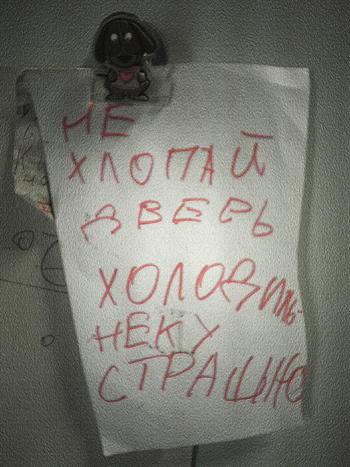 НЕ
ХЛОПАЙ
ДВЕРЬ
ХОЛОДИЛЬ
НЕКУ
СТРАШНО